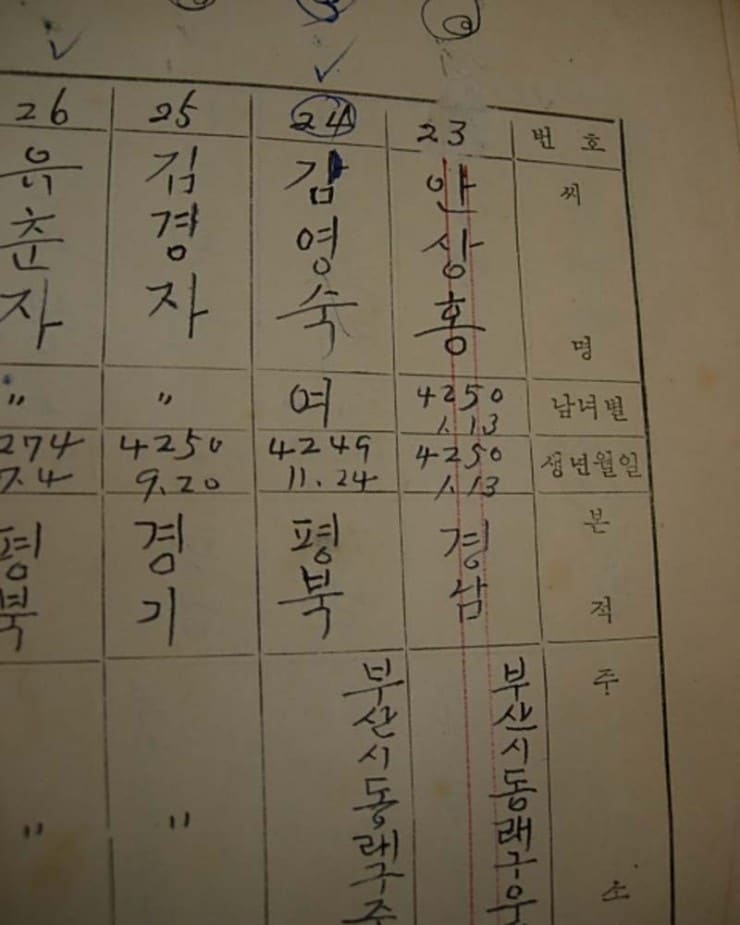 번호
씨명
남녀별
생년월일
본적
주소
23
안상홍
4250
1.13
4250
1.13
경남
부산시동래구우
24
김영숙
여
4249
11.24
평북
부산시동래구주
25
김경자
"
4250
9.20
경기
"
26
유춘자
"
274
7.4
평북
"